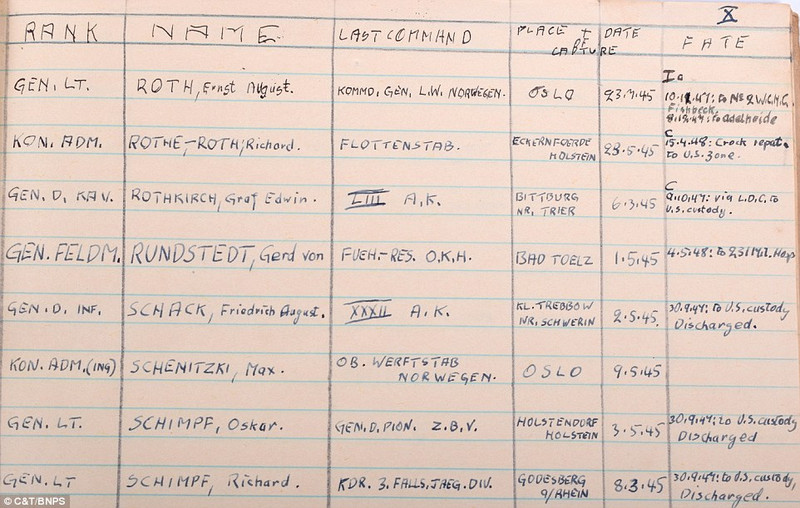 X
RANK NAME LAST COMMAND PLACE OF CAPTURE DATE FATE
GEN. LT. ROTH, Ernst August. KOMMD. GEN. L.W. NORWEGEN. OSLO 23.7.45 Ia
10.12.47: to No 2 W.C.H.C.
Fishbeck.
8.12.47: to Adelheide
KON. ADM. ROTHE-ROTH, Richard. FLOTTENSTAB. ECKERNFOERDE HOLSTEIN 23.5.45 C
15.4.48: Crock repat.
to U.S. Zone.
GEN. D. KAV. ROTHKIRCH, Graf Edwin. LIII A.K. BITTBURG NR. TRIER 6.3.45 C
9.10.47: via L.D.C. to
U.S. custody.
GEN. FELDM. RUNDSTEDT, Gerd von FUEH.-RES. O.K.H. BAD TOELZ 1.5.45 4.5.48: to 231 Mil. Hosp
GEN. D. INF. SCHACK, Friedrich August. XXXII A.K. KL. TREBBOW NR. SCHWERIN 2.5.45. 30.9.47: to U.S. custody
Discharged.
KON. ADM. (ING) SCHENITZKI, Max. OB. WERFTSTAB NORWEGEN. OSLO 9.5.45
GEN. LT. SCHIMPF, Oskar. GEN. D. PION. Z.B.V. HOLSTENDORF HOLSTEIN 3.5.45 30.9.47: to U.S. custody
Discharged
GEN. LT SCHIMPF, Richard. KDR. 3. FALLS. JAEG. DIV. GODESBERG 9/RHEIN 8.3.45 30.9.47: to U.S. custody,
Discharged.
© C&T/BNPS